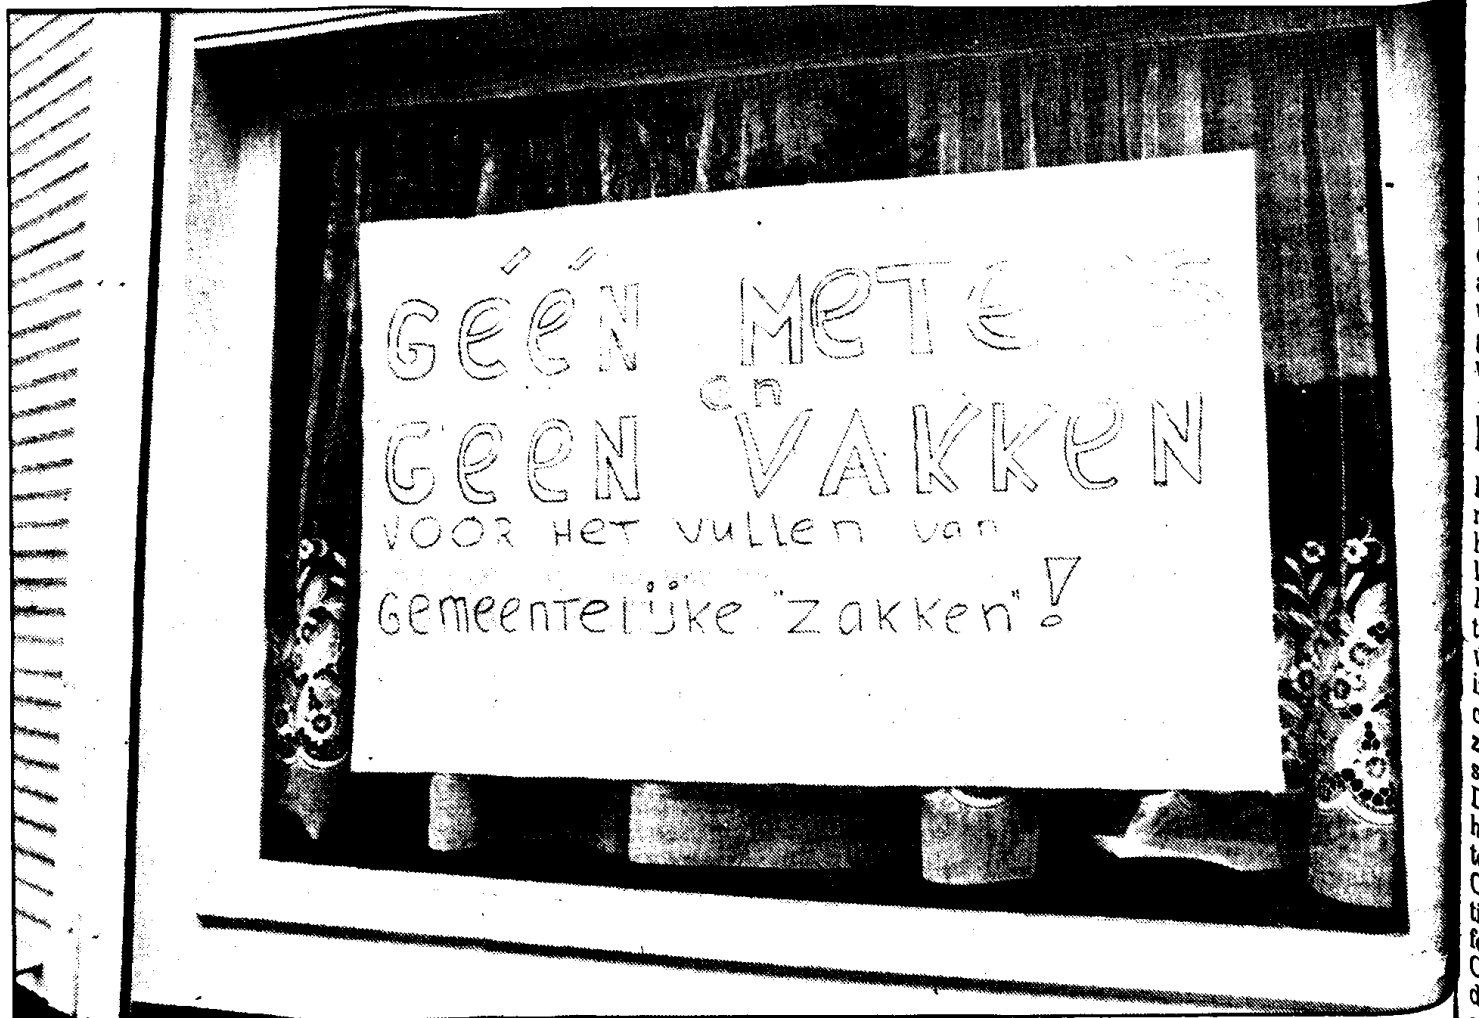 GÉÉN METERS
en
GEEN VAKKEN
VOOR HET vullen van
Gemeentelijke "zakken"!